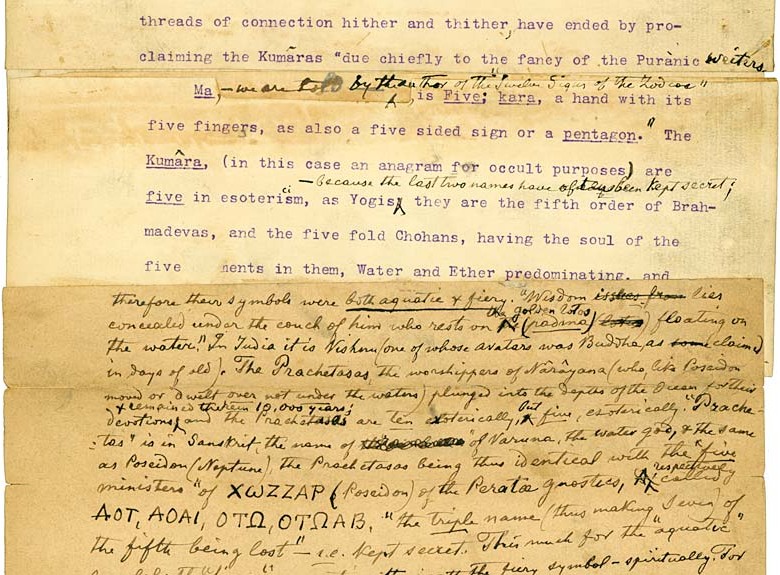 threads of connection hither and thither, have ended by pro-
claiming the Kumâras "due chiefly to the fancy of the Purânic writers
Ma, — we are told by the author of the "Twelve Signs of the Zodiac"
is Five; kara, a hand with its
five fingers, as also a five sided sign or a pentagon." The
Kumâra, (in this case an anagram for occult purposes) are
— because the last two names have always been kept secret;
five in esoteriïsm, as Yogis, they are the fifth order of Brah-
madevas, and the five fold Chohans, having the soul of the
five ments in them, Water and Ether predominating, and
therefore their symbols were both aquatic & fiery. "Wisdom lies
the golden lotos
concealed under the couch of him who rests on (padma) floating on
the water." In India it is Vishnu (one of whose avatars was Buddha, as claimed
in days of old). The Prachetasas, the worshippers of Nârâyana (who, like Poseidon
moved or dwelt over not under the waters) plunged into the depths of the Ocean for their
& remained therein 10,000 years;
devotions, and the Prachetasas are ten exoterically, but five, esoterically. "Prache-
tas" is in Sanskrit, the name of Varuna, the water god, & the same
as Poseidon (Neptune), the Prachetasas being thus identical with the "five
respectively
ministers" of ΧΩΖΖΑΡ (Poseidon) of the Peratæ gnostics, called
ΑΟΤ, ΑΟΑΙ, ΟΤΩ, ΟΤΩΑΒ, "the triple name (thus making seven) of
the fifth being lost" — i.e. kept secret. This much for the "aquatic"
the fiery symbol — spiritually. For